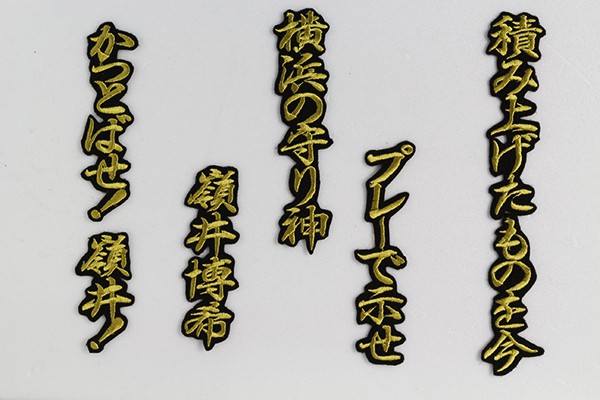 積み上げたものを今
プレーで示せ
横浜の守り神
嶺井博希
かっとばせ！
嶺井！